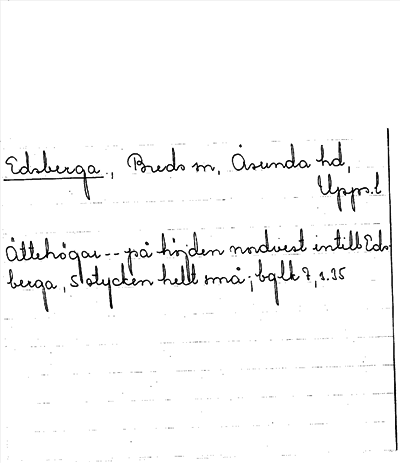 Edsberga, Breds sn, Åsunda hd,
Upps.l
Ättehögar -- på höjden nordvest intill Eds-
berga, 5 stycken helt små; bglk 7, s. 35